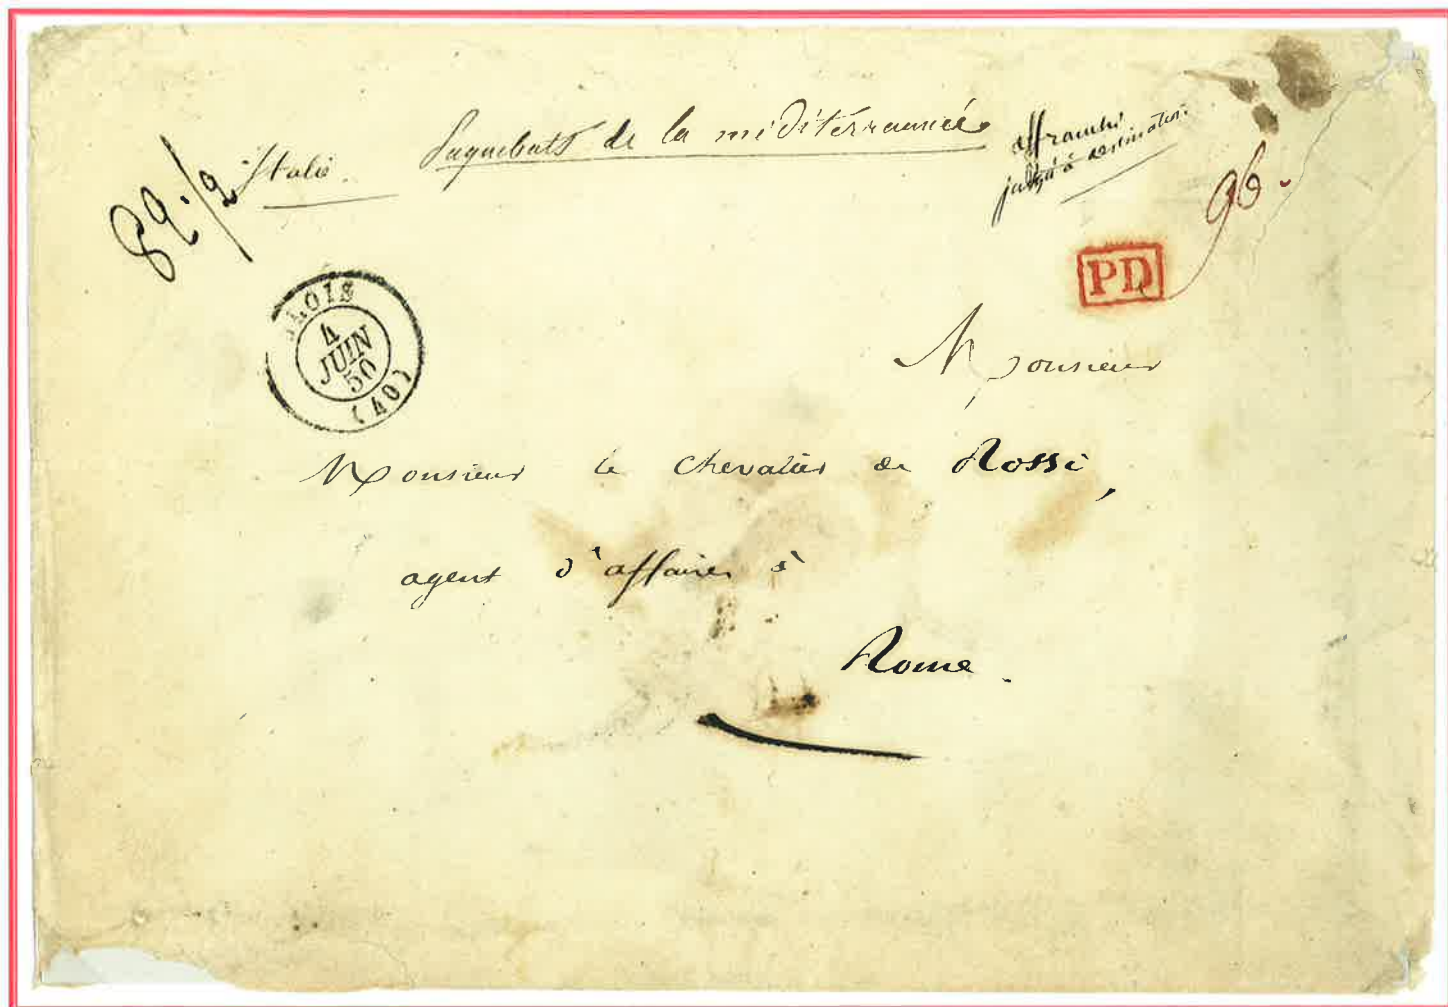 Italie. Paquebots de la méditerrannée
affranchi
jusqu'à destination.
82./2
96.
PD
BLOIS
4
JUIN
50
(40)
Monsieur
Monsieur le chevalier de Rossi,
agent d'affaires à
Rome.